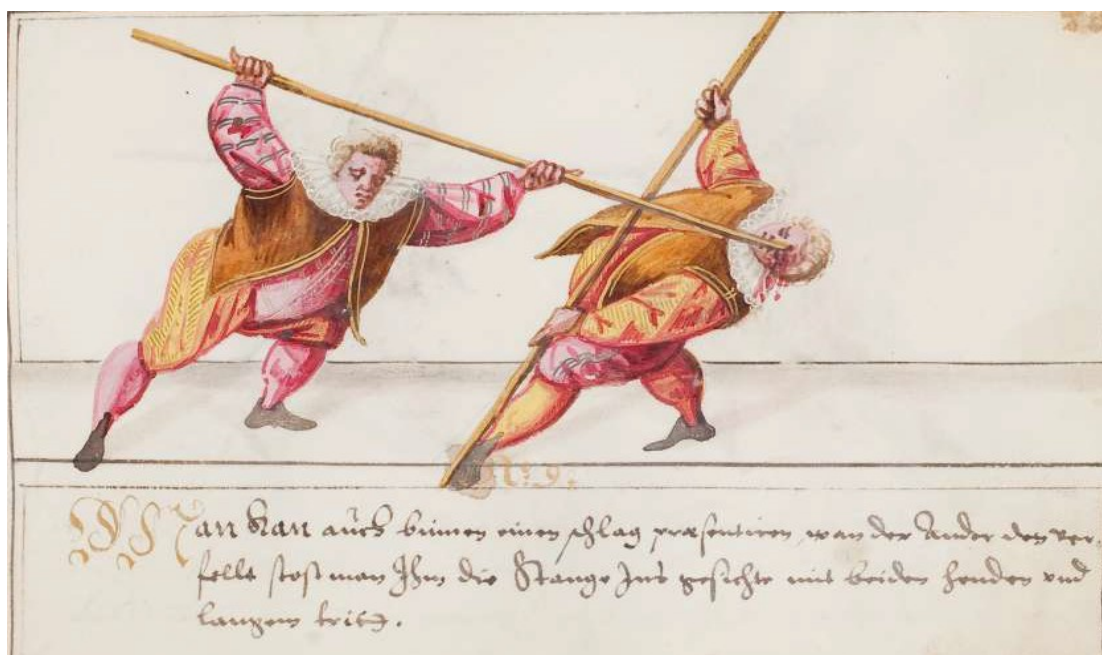 N: 9:
Man kan auch binnen einen schlag præsentiren, wan der Ander den ver-
fellt stost man Ihm die Stange Ins gesichte mit beiden henden vnd
langem tritt.